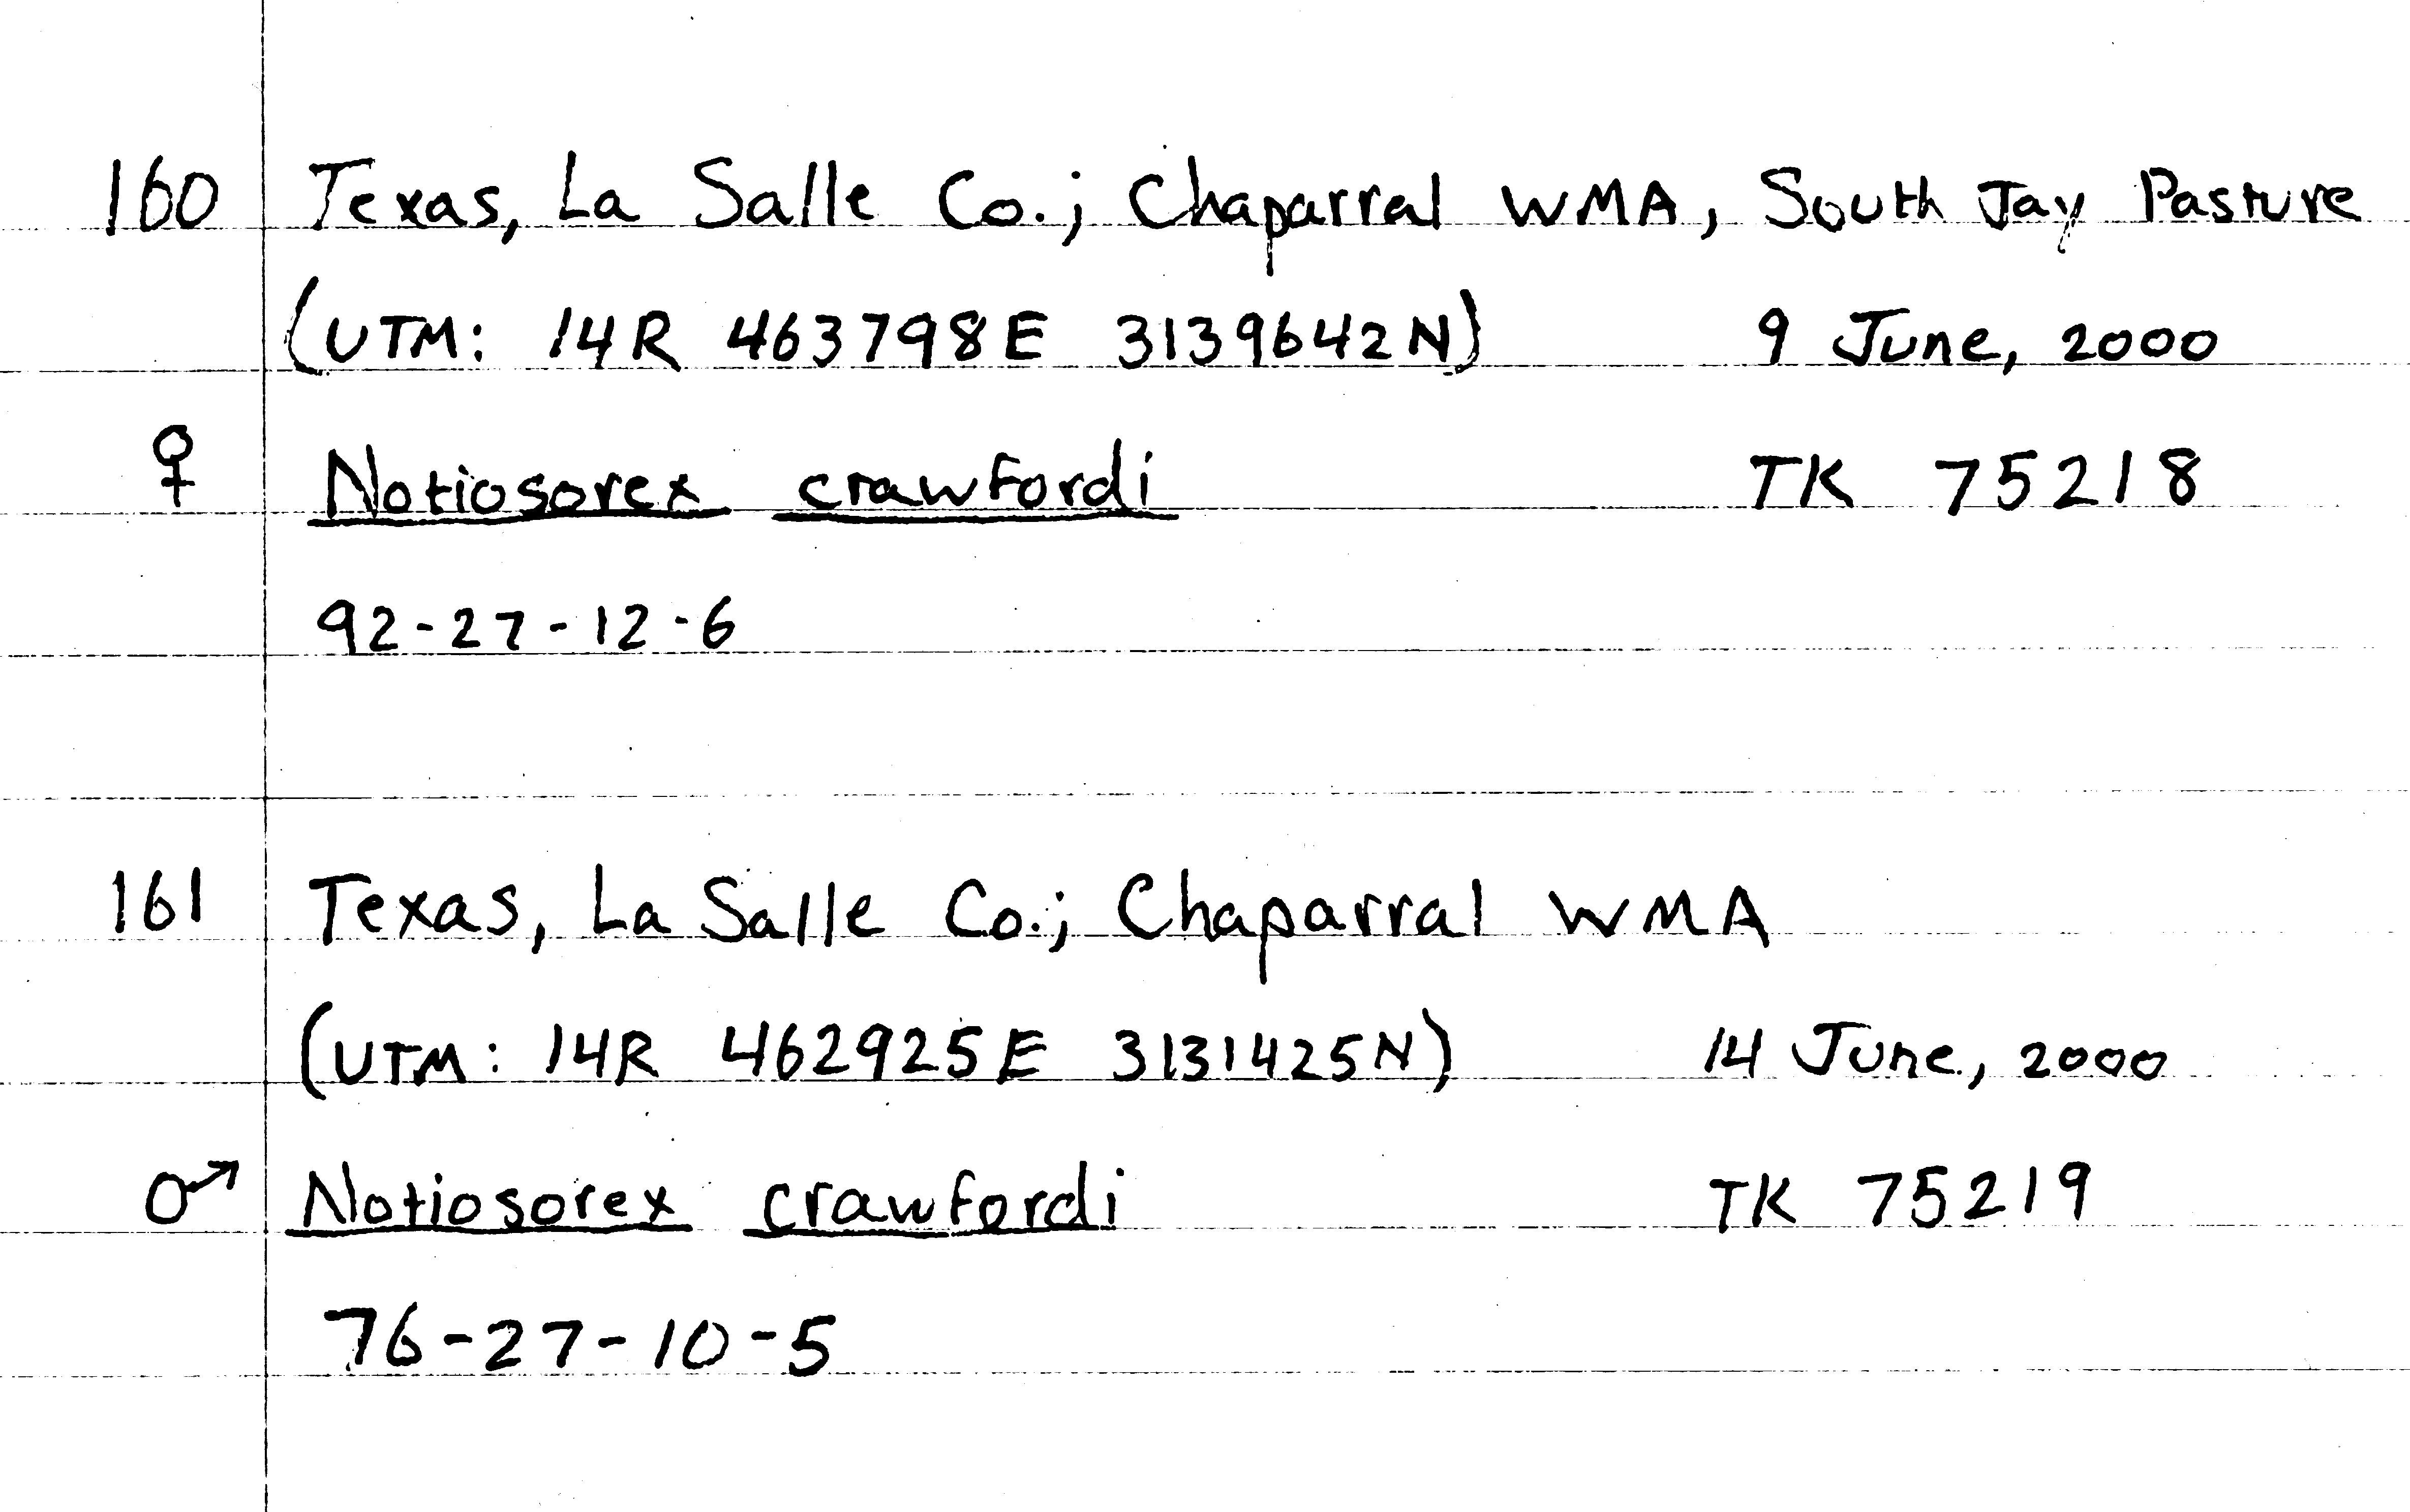 160 Texas, La Salle Co.; Chaparral WMA, South Jay Pasture
(UTM: 14R 463798E 3139642N) 9 June, 2000
♀ Notiosorex crawfordi TK 75218
92-27-12-6
161 Texas, La Salle Co.; Chaparral WMA
(UTM: 14R 462925E 3131425N) 14 June, 2000
♂ Notiosorex crawfordi TK 75219
76-27-10-5